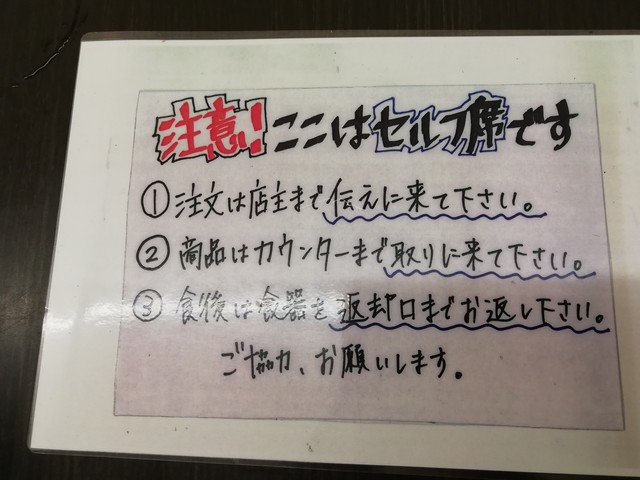 注意!ここはセルフ席です
①注文は店主まで伝えに来て下さい。
②商品はカウンターまで取りに来て下さい。
③食後は食器を返却口までお返し下さい。
ご協力、お願いします。